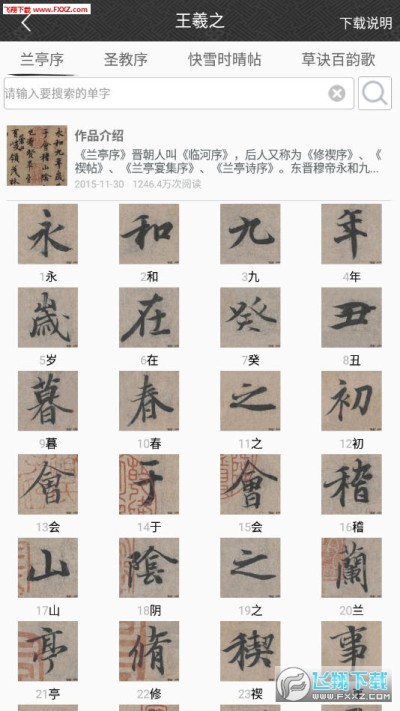 飞翔下载
www.FXXZ.com
王羲之
下载说明
兰亭序
圣教序
快雪时晴帖
草诀百韵歌
请输入要搜索的单字
作品介绍
《兰亭序》晋朝人叫《临河序》，后人又称为《修禊序》、《
禊帖》、《兰亭宴集序》、《兰亭诗序》。东晋穆帝永和九...
2015-11-30 1246.4万次阅读
永 和 九 年
1永 2和 3九 4年
歲 在 癸 丑
5岁 6在 7癸 8丑
暮 春 之 初
9暮 10春 11之 12初
會 于 會 稽
13会 14于 15会 16稽
山 陰 之 蘭
17山 18阴 19之 20兰
亭 脩 稧 事
21亭 22修 23禊
飞翔下载
WWW.FXXZ.COM